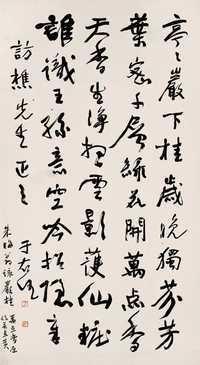 亭〻巖下桂歲晚獨芬芳
葉密千層綠花開萬点黃
天香生淨想雲影護仙粧
誰識王孫意空吟招隱章
訪樵先生正之
于右任
朱晦翁詠巖桂